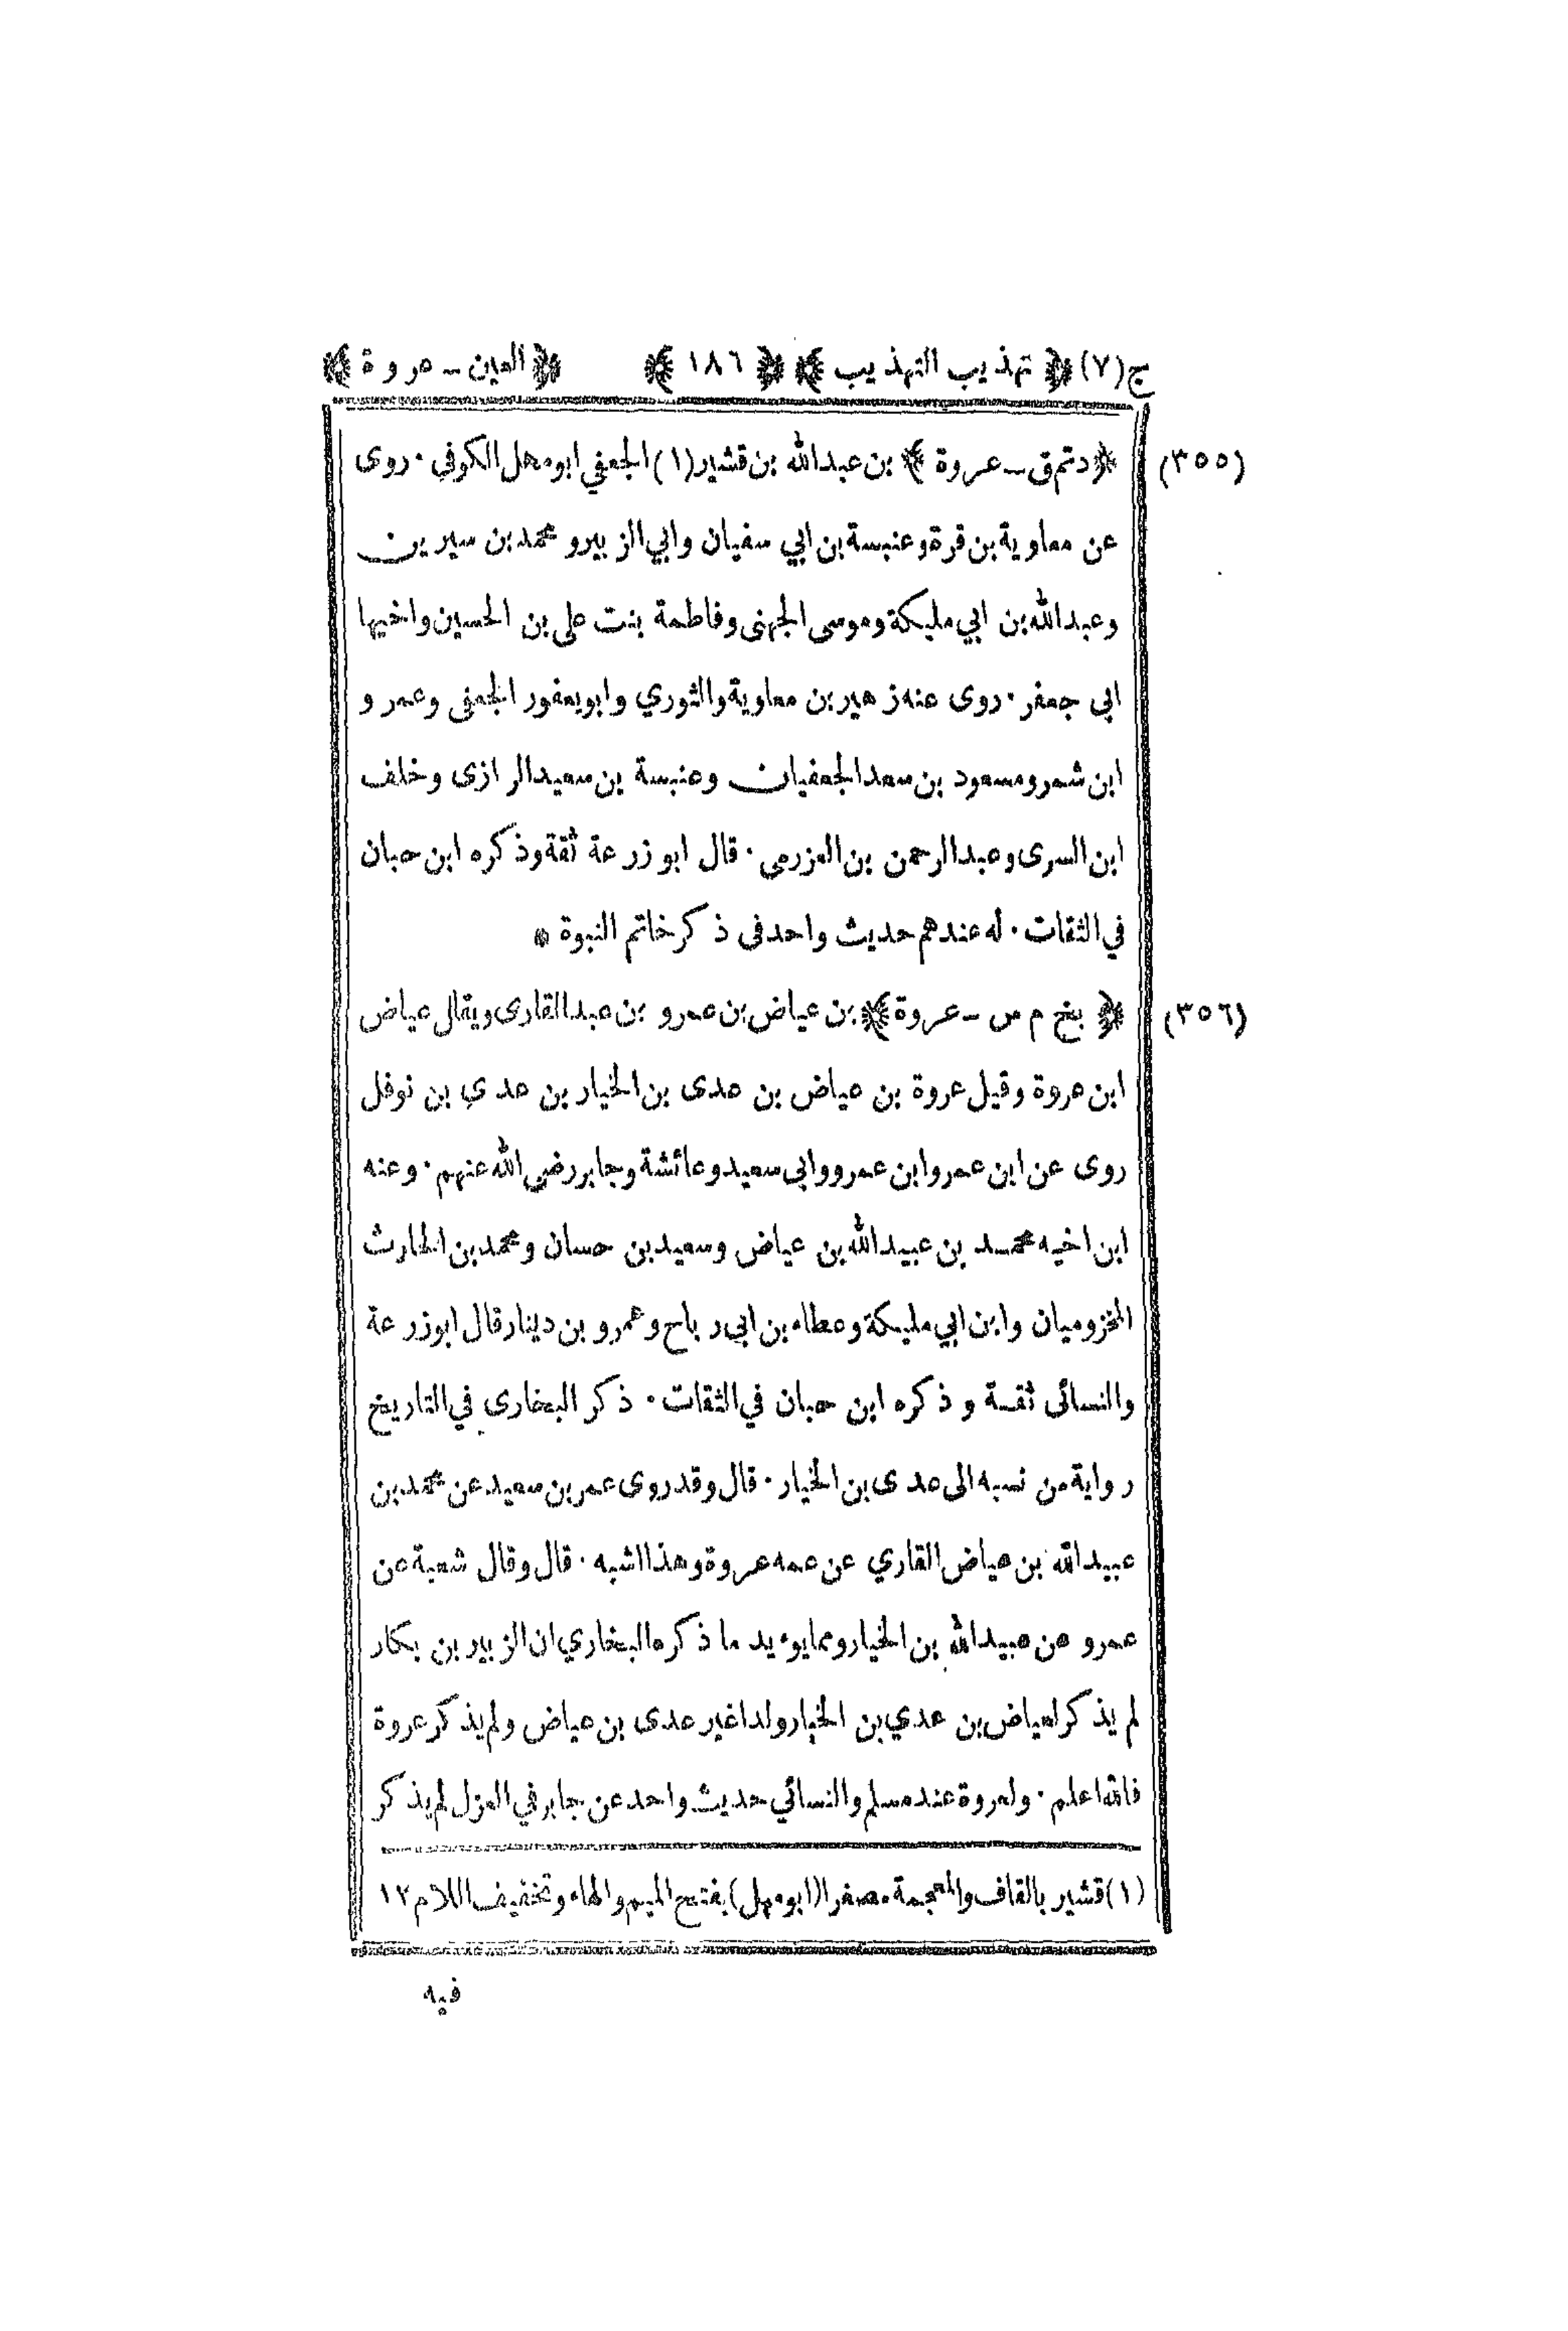 ج(٧) ﴿ تهذيب التهذيب ﴾ ﴿ ١٨٦ ﴾ ﴿ العين ـ عروة ﴾
(٣٥٥) ﴿ دتم ق ـ عروة ﴾ بن عبدالله بن قشير(١) الجعفي ابو مهل الكوفي · روى
عن معاوية بن قرة وعنبسة بن ابي سفيان وابي الزبير و محمد بن سيرين
وعبدالله بن ابي مليكة وموسى الجهنى وفاطمة بنت على بن الحسين واخيها
ابى جعفر · روى عنه زهير بن معاوية والثوري وابو يعفور الجعفى وعمرو
ابن شمر ومسعود بن سعد الجعفيان وعنبسة بن سعيد الرازى وخلف
ابن السرى وعبدالرحمن بن العزرمى · قال ابو زرعة ثقة وذكره ابن حبان
في الثقات · له عندهم حديث واحد فى ذكر خاتم النبوة *
(٣٥٦) ﴿ بخ م س ـ عروة ﴾ بن عياض بن عمرو بن عبد القارى ويقال عياض
ابن عروة وقيل عروة بن عياض بن عدى بن الخيار بن عدي بن نوفل
روى عن ابن عمر وابن عمرو وابى سعيد وعائشة وجابر رضي الله عنهم · وعنه
ابن اخيه محمد بن عبيدالله بن عياض وسعيد بن حسان ومحمد بن الحارث
المخزوميان وابن ابي مليكة وعطاء بن ابى رباح وعمرو بن دينار قال ابوزرعة
والنسائى ثقة و ذكره ابن حبان في الثقات · ذكر البخارى في التاريخ
رواية من نسبه الى عدى بن الخيار · قال وقد روى عمر بن سعيد عن محمد بن
عبيدالله بن عياض القاري عن عمه عروة وهذا اشبه · قال وقال شعبة عن
عمرو عن عبيدالله بن الخيار ومما يوءيد ما ذكره البخاري ان الزبير بن بكار
لم يذكر لعياض بن عدي بن الخيار ولدا غير عدى بن عياض ولم يذكر عروة
فالله اعلم · ولعروة عند مسلم والنسائي حديث واحد عن جابر في العزل لم يذكر
(١) قشير بالقاف والمعجمة مصغرا (ابومهل) بفتح الميم والهاء وتخفيف اللام ١٢
فيه